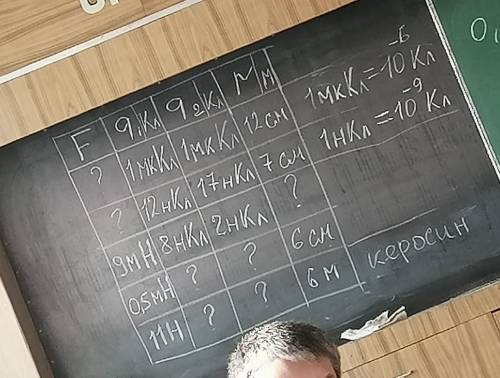 F q₁Кл q₂Кл r м
? 1мкКл 1мкКл 12см
? 12нКл 17нКл 7см
9мН 8нКл 2нКл ?
0,5мН ? ? 6см
11Н ? ? 6м
1мкКл=10⁻⁶Кл
1нКл=10⁻⁹Кл
керосин